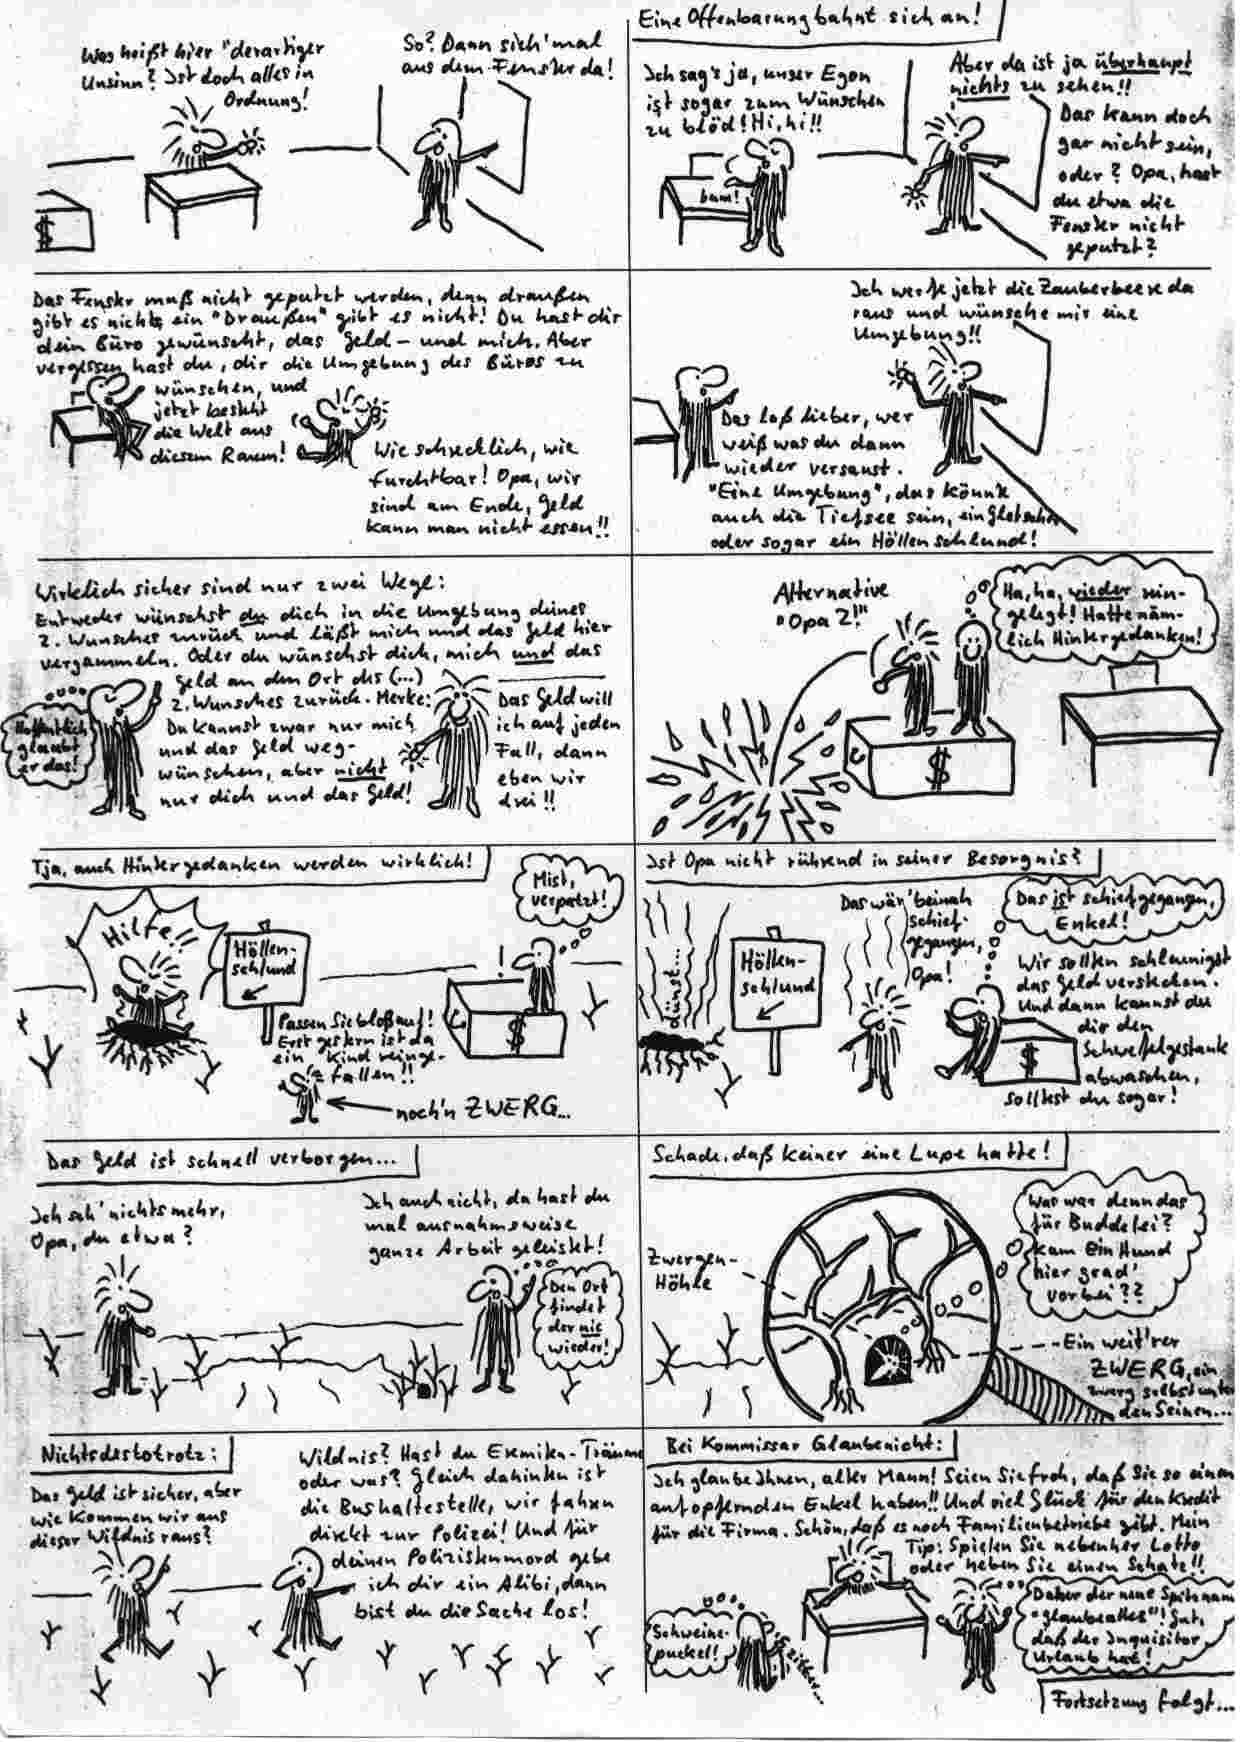 Was heißt hier "derartiger
Unsinn? Ist doch alles in
Ordnung!
So? Dann sieh' mal
aus dem Fenster da!
$
Eine Offenbarung bahnt sich an!
Ich sag's ja, unser Egon
ist sogar zum Wünschen
zu blöd! Hi, hi!!
bum!
Aber da ist ja überhaupt
nichts zu sehen!!
Das kann doch
gar nicht sein,
oder? Opa, hast
du etwa die
Fenster nicht
geputzt?
Das Fenster muß nicht geputzt werden, denn draußen
gibt es nichts, ein "Draußen" gibt es nicht! Du hast dir
dein Büro gewünscht, das Geld - und mich. Aber
vergessen hast du, dir die Umgebung des Büros zu
wünschen, und
jetzt besteht
die Welt aus
diesem Raum!
Wie schrecklich, wie
furchtbar! Opa, wir
sind am Ende, Geld
kann man nicht essen!!
Ich werfe jetzt die Zauberbeere da
raus und wünsche mir eine
Umgebung!!
Das laß lieber, wer
weiß was du dann
wieder versaust.
"Eine Umgebung", das könnte
auch die Tiefsee sein, ein Gletscher
oder sogar ein Höllenschlund!
Wirklich sicher sind nur zwei Wege:
Entweder wünschst du dich in die Umgebung deines
2. Wunsches zurück und läßt mich und das Geld hier
vergammeln. Oder du wünschst dich, mich und das
Geld an den Ort des (...)
2. Wunsches zurück. Merke:
Du kannst zwar nur mich
und das Geld weg-
wünschen, aber nicht
nur dich und das Geld!
Hoffentlich
glaubt
er das!
Das Geld will
ich auf jeden
Fall, dann
eben wir
drei!!
Alternative
"Opa 2!"
Ha, ha, wieder rein-
gelegt! Hatte näm-
lich Hintergedanken!
$
Tja, auch Hintergedanken werden wirklich!
Hilfe!!
Höllen-
schlund
Mist,
verpatzt!
!
$
Passen Sie bloß auf!
Erst gestern ist da
ein Kind reinge-
fallen!!
noch'n ZWERG...
Ist Opa nicht rührend in seiner Besorgnis?
dünst...
Höllen-
schlund
Das wär' beinah
schief-
gegangen,
Opa!
Das ist schiefgegangen,
Enkel!
Wir sollten schleunigst
das Geld verstecken.
Und dann kannst du
dir den
Schwefelgestank
abwaschen,
solltest du sogar!
$
Das Geld ist schnell verborgen...
Ich seh' nichts mehr,
Opa, du etwa?
Ich auch nicht, da hast du
mal ausnahmsweise
ganze Arbeit geleistet!
Den Ort
findet
der nie
wieder!
Schade, daß keiner eine Lupe hatte!
Zwergen-
Höhle
Was war denn das
für Buddelei?
Kam ein Hund
hier grad'
vorbei??
Ein weit'rer
ZWERG, ein
Zwerg selbst unter
den Seinen...
Nichtsdestotrotz:
Das Geld ist sicher, aber
wie kommen wir aus
dieser Wildnis raus?
Wildnis? Hast du Eremiten-Träume
oder was? Gleich dahinten ist
die Bushaltestelle, wir fahren
direkt zur Polizei! Und für
deinen Polizistenmord gebe
ich dir ein Alibi, dann
bist du die Sache los!
Bei Kommissar Glaubenicht:
Ich glaube Ihnen, alter Mann! Seien Sie froh, daß Sie so einen
aufopfernden Enkel haben!! Und viel Glück für den Kredit
für die Firma. Schön, daß es noch Familienbetriebe gibt. Mein
Tip: Spielen Sie nebenher Lotto
oder heben Sie einen Schatz!!
Schweine-
puckel!
Zitter...
Daher der neue Spitzname
"glaubealles"! Gut,
daß der Inquisitor
Urlaub hat!
Fortsetzung folgt...